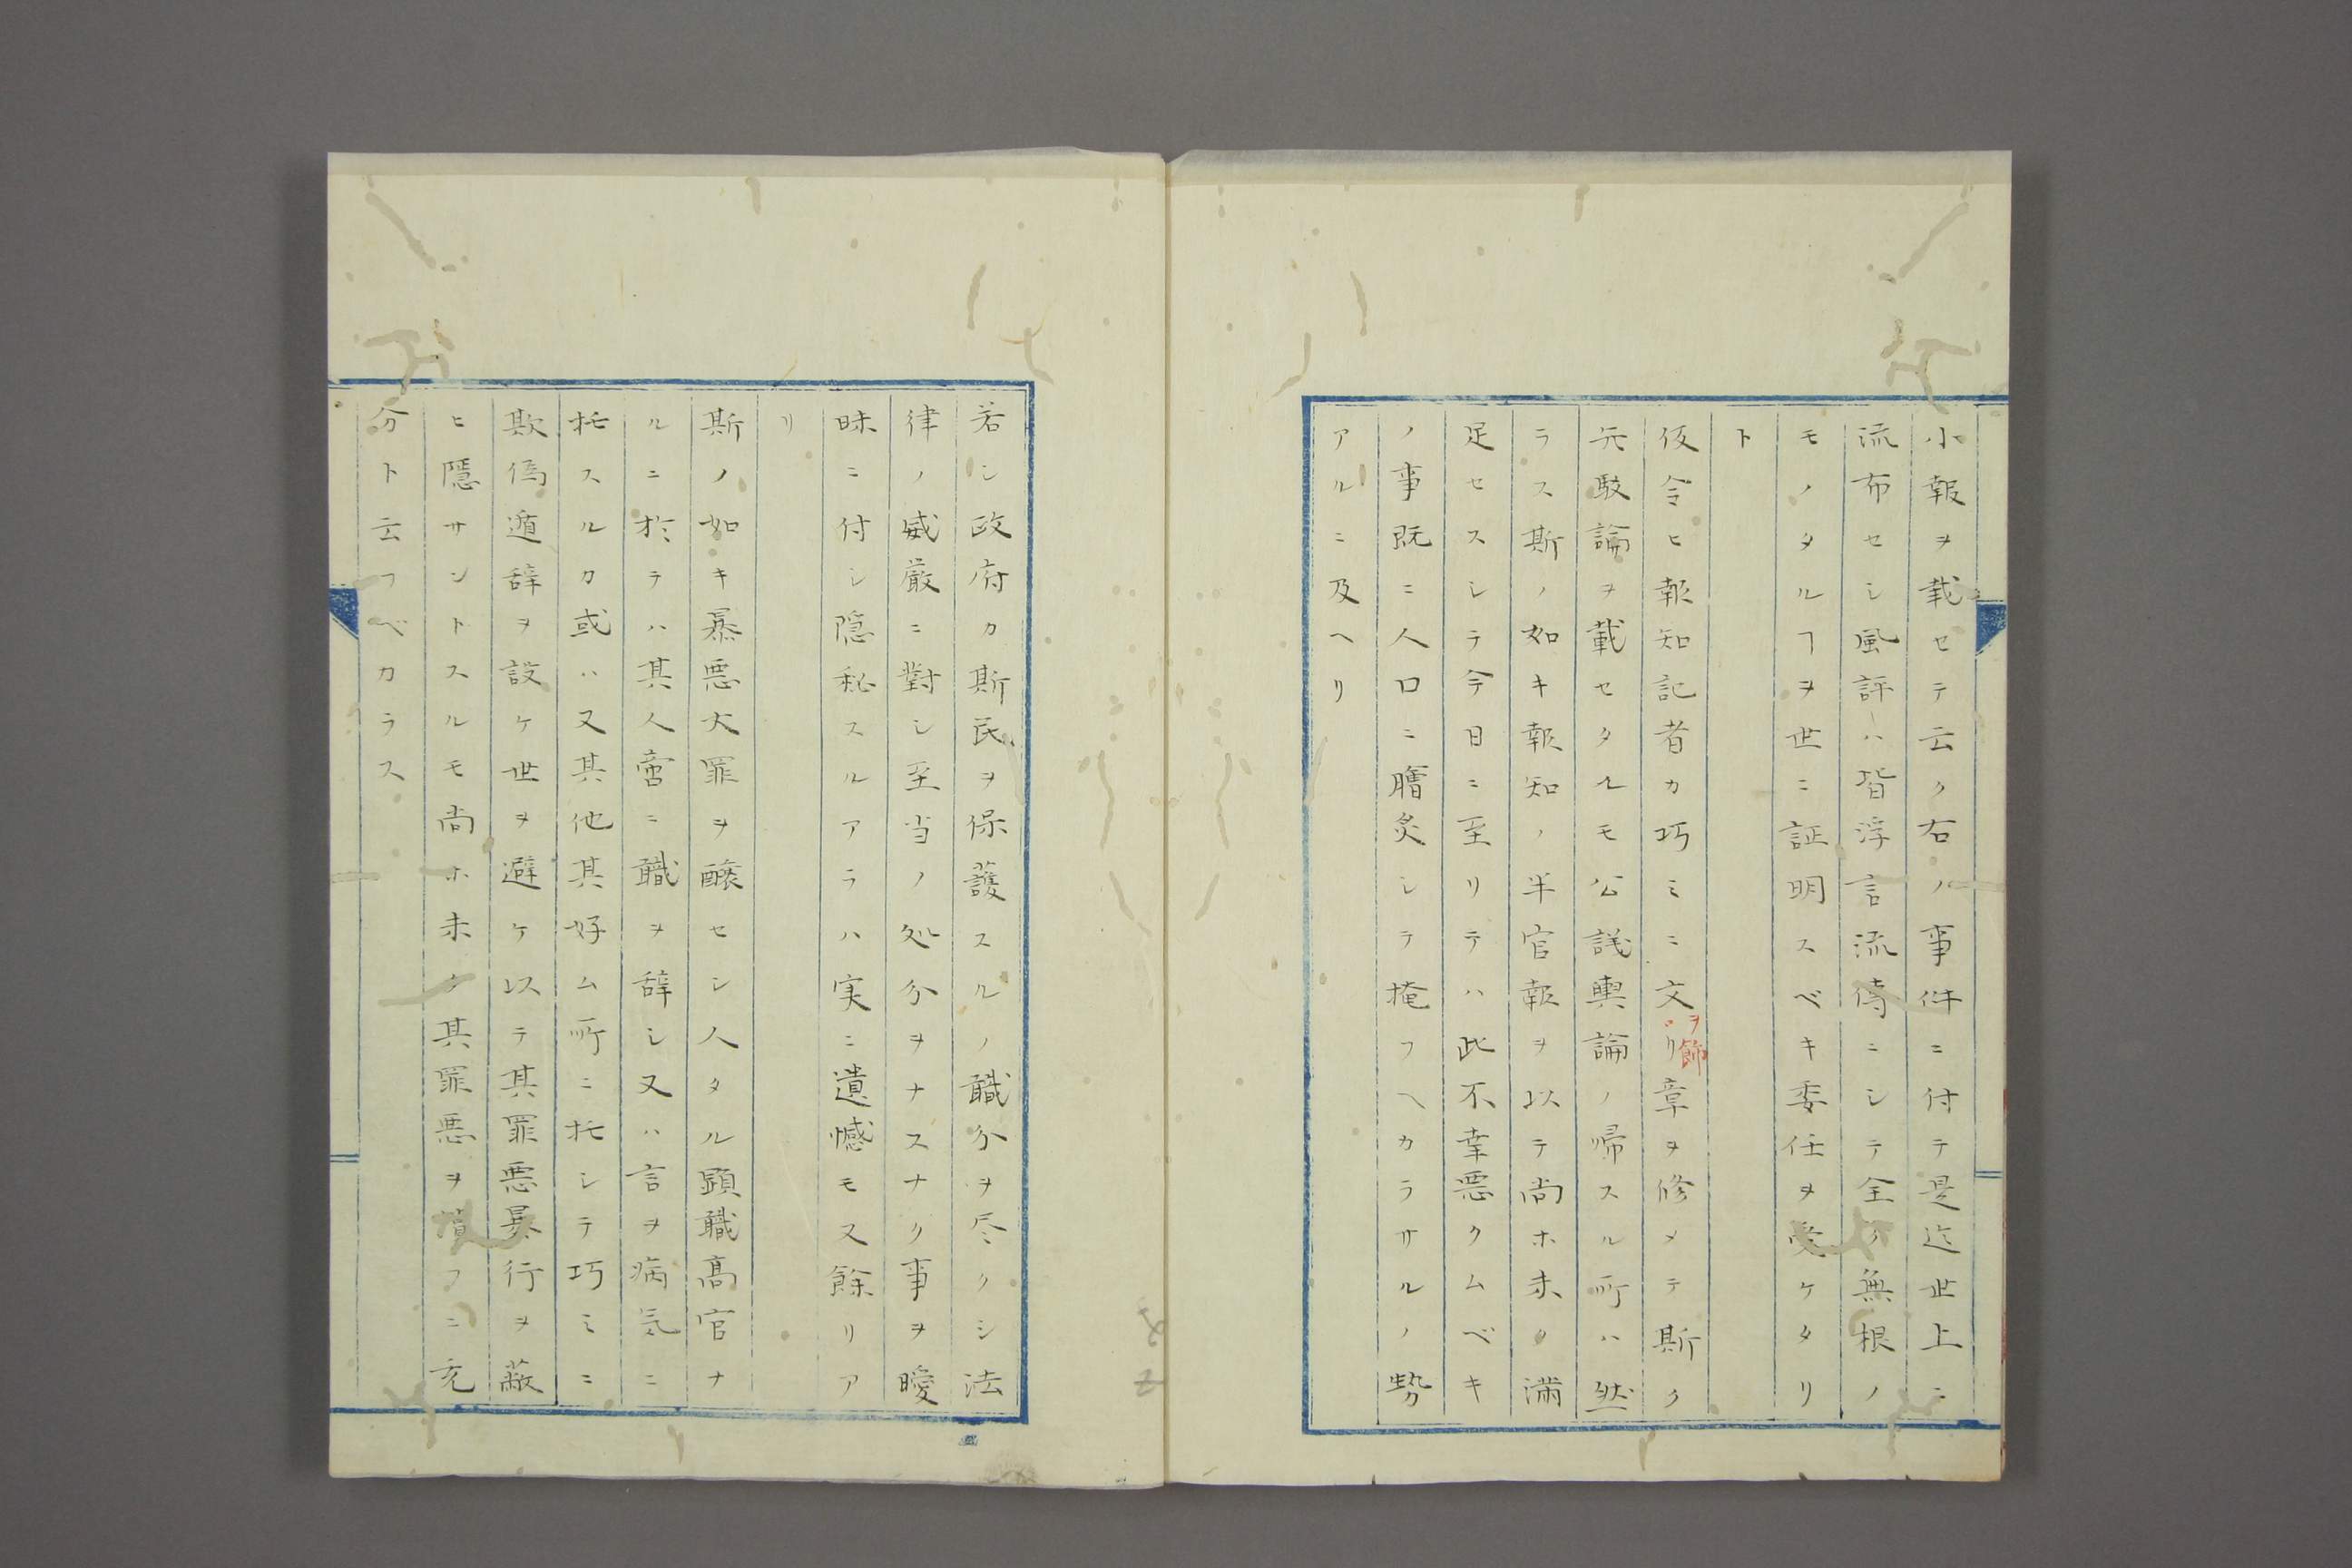 小報ヲ載セテ云ク右ノ事件ニ付テ是迄世上ニ
流布セシ風評ハ皆浮言流傳ニシテ全ク無根ノ
モノタルヿヲ世ニ証明スベキ委任ヲ受ケタリ
ト
仮令ヒ報知記者カ巧ミニ文ヲ飾リ章ヲ修メテ斯ク
元駁論ヲ載セタルモ公議輿論ノ帰スル所ハ然
ラス斯ノ如キ報知ノ半官報ヲ以テ尚ホ未タ満
足セスシテ今日ニ至リテハ此不幸悪クムベキ
ノ事既ニ人口ニ膾炙シテ掩フヘカラサルノ勢
アルニ及ヘリ
若シ政府カ斯民ヲ保護スルノ職分ヲ尽クシ法
律ノ威厳ニ對シ至当ノ処分ヲナスナク事ヲ曖
昧ニ付シ隠秘スルアラハ実ニ遺憾モ又餘リア
リ
斯ノ如キ暴悪大罪ヲ醸セシ人タル顕職高官ナ
ルニ於テハ其人啻ニ職ヲ辞シ又ハ言ヲ病気ニ
托スルカ或ハ又其他其好ム所ニ托シテ巧ミニ
欺偽遁辞ヲ設ケ世ヲ避ケ以テ其罪悪暴行ヲ蔽
ヒ隱サントスルモ尚ホ未タ其罪悪ヲ償フニ充
分ト云フベカラス